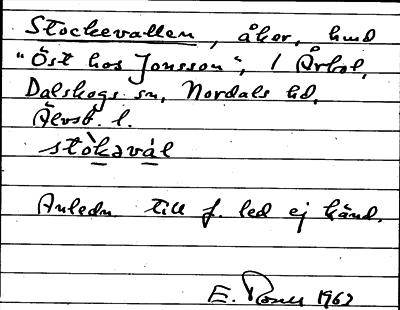 Stockevallen, åker, hmd
"Öst hos Jonsson", 1 Årbol,
Dalskogs sn, Nordals hd,
Älvsb. l.
stòkəvál
Anledn till f. led ej känd.
E. 1962